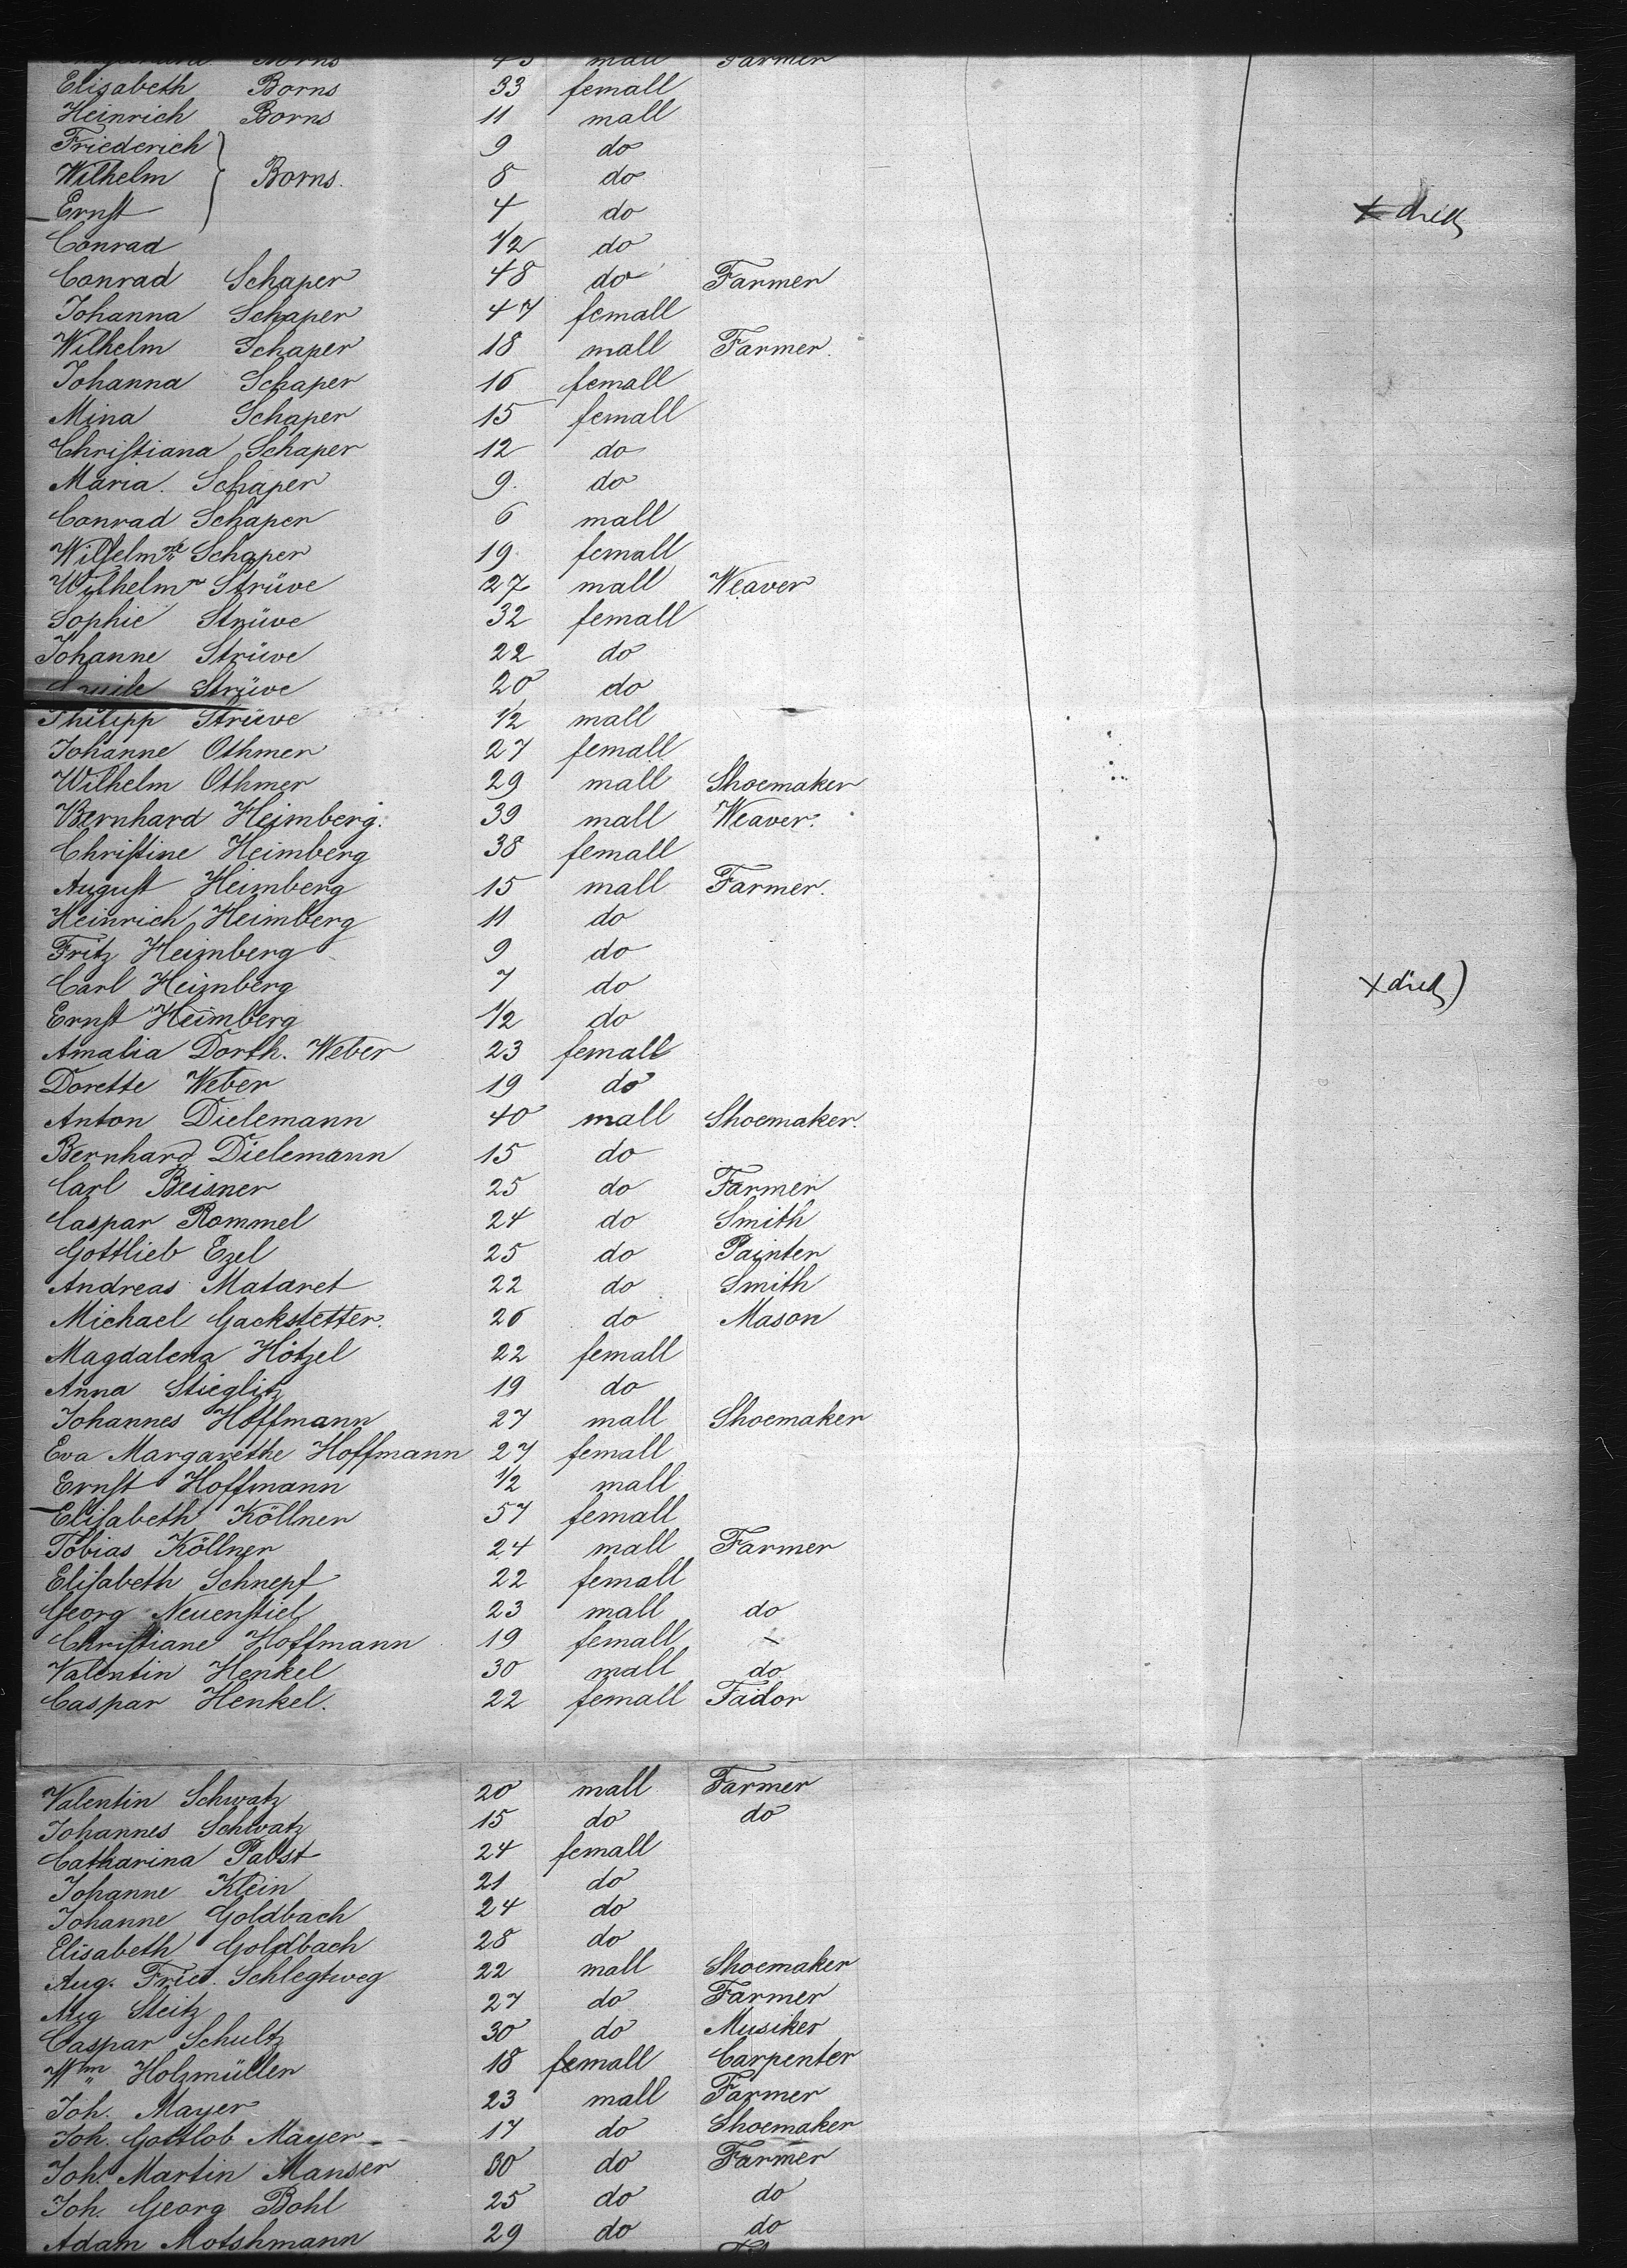 Borns 43 mall Farmer
Elisabeth Borns 33 femall
Heinrich Borns 11 mall
Friederich 9 do
Wilhelm } Borns. 8 do
Ernst 4 do x died
Conrad 1/2 do
Conrad Schaper 48 do Farmer
Johanna Schaper 47 femall
Wilhelm Schaper 18 mall Farmer.
Johanna Schaper 16 femall
Mina Schaper 15 femall
Christiana Schaper 12 do
Maria. Schaper 9. do
Conrad Schaper 6 mall
Wilhelmne Schaper 19 femall
Wilhelm Strüve 27 mall Weaver
Sophie Strüve 32 femall
Johanne Strüve 22 do
Strüve 20 do
Philipp Strüve 1/2 mall
Johanne Othmer 27 femall
Wilhelm Othmer 29 mall Shoemaker
Bernhard Heimberg. 39 mall Weaver.
Christine Heimberg 38 femall
August Heimberg 15 mall Farmer.
Heinrich Heimberg 11 do
Fritz Heimberg 9 do
Carl Heimberg 7 do x died)
Ernst Heimberg 1/2 do
Amalia Dorth. Weber 23 femall
Dorette Weber 19 do
Anton Dielemann 40 mall Shoemaker.
Bernhard Dielemann 15 do
Carl Beisner 25 do Farmer
Caspar Rommel 24 do Smith
Gottlieb Ezel 25 do Painter
Andreas Mataret 22 do Smith
Michael Gackstetter. 26 do Mason
Magdalena Hötzel 22 femall
Anna Stieglitz 19 do
Johannes Hoffmann 27 mall Shoemaker
Eva Margarethe Hoffmann 27 femall
Ernst Hoffmann 1/2 mall
Elisabeth Köllner 57 femall
Tobias Köllner 24 mall Farmer
Elisabeth Schnepf 22 femall
Georg Neuenstiel 23 mall do
Christiane Hoffmann 19 femall
Valentin Henkel 30 mall do
Caspar Henkel. 22 femall Tailor
Valentin Schwatz 20 mall Farmer
Johannes Schwatz 15 do do
Catharina Pabst 24 femall
Johanne Klein 21 do
Johanne Goldbach 24 do
Elisabeth Goldbach 28 do
Aug. Fried. Schlegtweg 22 mall Shoemaker
Aug Steitz 27 do Farmer
Caspar Schultz 30 do Musiker
Wm Holzmüller 18 femall Carpenter
Joh. Mayer 23 mall Farmer
Joh. Gottlob Mayer 17 do Shoemaker
Joh. Martin Manser 30 do Farmer
Joh. Georg Bohl 25 do do
Adam Motshmann 29 do do